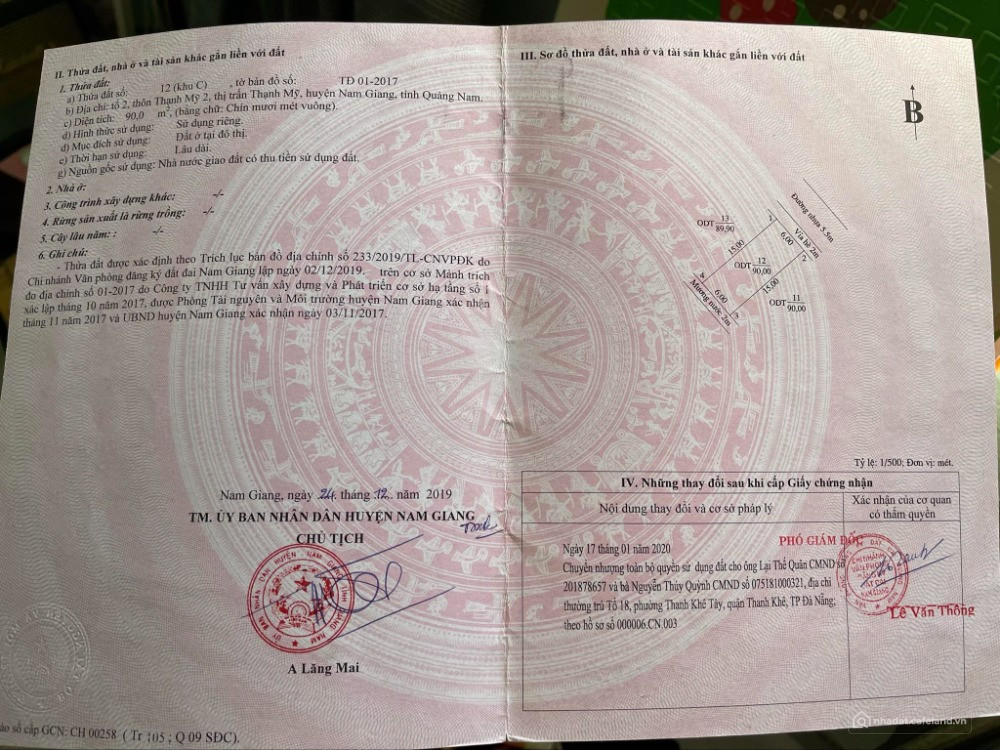 II. Thửa đất, nhà ở và tài sản khác gắn liền với đất
1. Thửa đất:
a) Thửa đất số: 12 (khu C) , tờ bản đồ số: TĐ 01-2017
b) Địa chỉ: tổ 2, thôn Thạnh Mỹ 2, thị trấn Thạnh Mỹ, huyện Nam Giang, tỉnh Quảng Nam.
c) Diện tích: 90,0 m², (bằng chữ: Chín mươi mét vuông).
d) Hình thức sử dụng: Sử dụng riêng.
đ) Mục đích sử dụng: Đất ở tại đô thị.
e) Thời hạn sử dụng: Lâu dài.
g) Nguồn gốc sử dụng: Nhà nước giao đất có thu tiền sử dụng đất.
2. Nhà ở:
3. Công trình xây dựng khác: -/-
4. Rừng sản xuất là rừng trồng: -/-
5. Cây lâu năm: : -/-
6. Ghi chú:
- Thửa đất được xác định theo Trích lục bản đồ địa chính số 233/2019/TL-CNVPĐK do
Chi nhánh Văn phòng đăng ký đất đai Nam Giang lập ngày 02/12/2019. trên cơ sở Mảnh trích
đo địa chính số 01-2017 do Công ty TNHH Tư vấn xây dựng và Phát triển cơ sở hạ tầng số 1
xác lập tháng 10 năm 2017, được Phòng Tài nguyên và Môi trường huyện Nam Giang xác nhận
tháng 11 năm 2017 và UBND huyện Nam Giang xác nhận ngày 03/11/2017.
Nam Giang, ngày 24 tháng 12 năm 2019
TM. ỦY BAN NHÂN DÂN HUYỆN NAM GIANG
CHỦ TỊCH
A Lăng Mai
vào sổ cấp GCN: CH 00258 ( Tr 105 ; Q 09 SĐC).
III. Sơ đồ thửa đất, nhà ở và tài sản khác gắn liền với đất
B
Đường nhựa 5.5m
Vỉa hè 2m
ODT 13
89,90
1
15.00
6.00
2
ODT 12
90,00
4
6.00
15.00
Mương nước 2m
3
ODT 11
90,00
Tỷ lệ: 1/500; Đơn vị: mét.
IV. Những thay đổi sau khi cấp Giấy chứng nhận
Nội dung thay đổi và cơ sở pháp lý
Xác nhận của cơ quan
có thẩm quyền
Ngày 17 tháng 01 năm 2020
Chuyển nhượng toàn bộ quyền sử dụng đất cho ông Lại Thế Quân CMND số
201878657 và bà Nguyễn Thúy Quỳnh CMND số 075181000321, địa chỉ
thường trú Tổ 18, phường Thanh Khê Tây, quận Thanh Khê, TP Đà Nẵng;
theo hồ sơ số 000006.CN.003
PHÓ GIÁM ĐỐC
Lê Văn Thông
nhadat.cafeland.vn